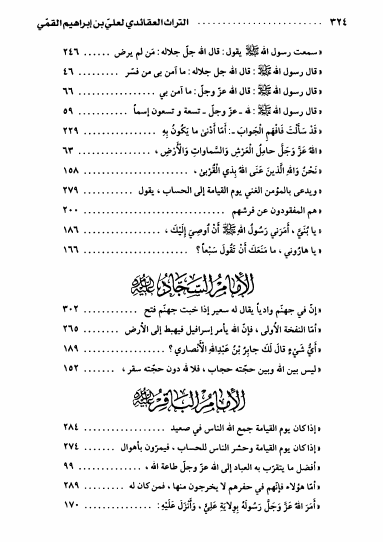 ٣٢٤ ........ التراث العقائدي لعلي بن إبراهيم القمّي
« سمعت رسول الله ﷺ يقول: قال الله جلّ جلاله: مَن لم يرض ..... ٢٤٦
« قال رسول الله ﷺ: قال الله جلّ جلاله: ما آمن بي من فسّر ..... ٤٦
« قال رسول الله ﷺ: قال الله عزّ وجلّ: ما آمن بي ........ ٦٦
« قال رسول الله ﷺ: لله ـ عزّ وجلّ ـ تسعة و تسعون إسماً ....... ٥٩
« قَدْ سَأَلْتَ فَافْهَمِ الْجَوَابَ ـ: أَمَّا أَدْنَىٰ مَا يَكُونُ بِهِ ........ ٢٢٩
« اللهُ عَزَّ وَجَلَّ حَامِلُ الْعَرْشِ وَالسَّماوَاتِ وَالْأَرْضِ ، ........ ٦٣
« نَحْنُ وَاللهِ الَّذِينَ عَنَى اللهُ بِذِي الْقُرْبىٰ ، ........ ١٥٨
« ويدعى بالمؤمن الغني يوم القيامة إلى الحساب ، يقول ........ ٢٧٩
« هم المفقودون عن فرشهم ........ ٢٠٠
« يا بُنَيَّ ، أَمَرَنِي رَسُولُ اللهِ ﷺ أَنْ أُوصِيَ إِلَيْكَ ، ........ ١٨٦
« يا هاروني ، ما مَنَعَكَ أَنْ تَقُولَ سَبْعاً ؟ ........ ١٦٦
الإمام السجاد عليه السلام
« إنّ في جهنّم وادياً يقال له سعير إذا خبت جهنّم فتح ........ ٣٠٢
« أمّا النفخة الأولى ، فإنّ الله يأمر إسرافيل فيهبط إلى الأرض ........ ٢٦٥
« أَيُّ شَيْءٍ قالَ لَكَ جابِرُ بْنُ عَبْدِاللهِ الْأَنْصارِي ؟ ........ ١٨٩
« ليس بين الله وبين حجّته حجاب ، فلا لله دون حجّته ستر ، ........ ١٥٢
الإمام الباقر عليه السلام
« إذا كان يوم القيامة جمع الله الناس في صعيد ........ ٢٨٤
« إذا كان يوم القيامة وحشر الناس للحساب ، فيمرّون بأهوال ........ ٢٧٤
« أفضل ما يتقرّب به العباد إلى الله عزّ وجلّ طاعة الله ، ........ ٩٩
« أما هؤلاء فإنّهم في حفرهم لا يخرجون منها ، فمن كان له ........ ٢٨٩
« أَمَرَ اللهُ عَزَّ وَجَلَّ رَسُولَهُ بِوِلايَةِ عَلِيٍّ ، وَأَنْزَلَ عَلَيْهِ: ........ ١٧٠